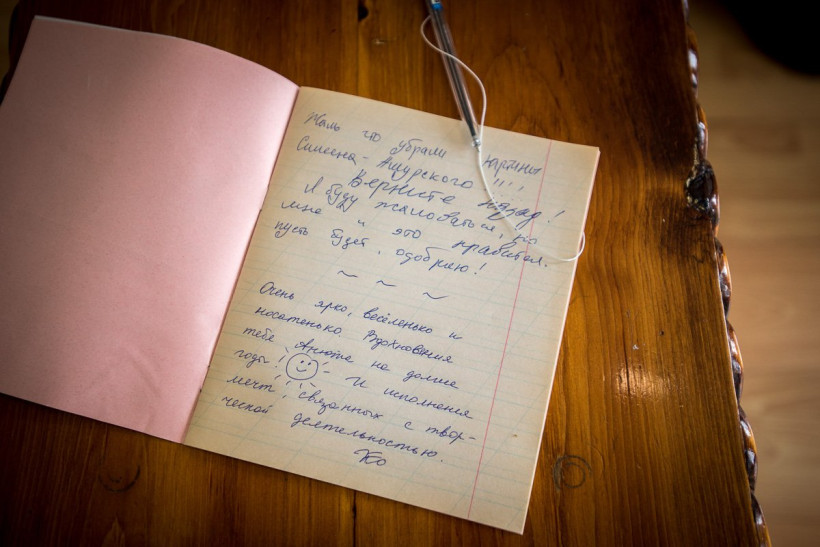 Жаль что убрали картины
Симеона-Ашурского!!!
Верните назад!
Я буду жаловаться, но
мне и это нравится.
пусть будет, одобряю!
~ ~ ~
Очень ярко, весёленько и
носатенько. Вдохновения
тебе Анюта на долгие
годы! И исполнения
мечт, связанных с твор-
ческой деятельностью.